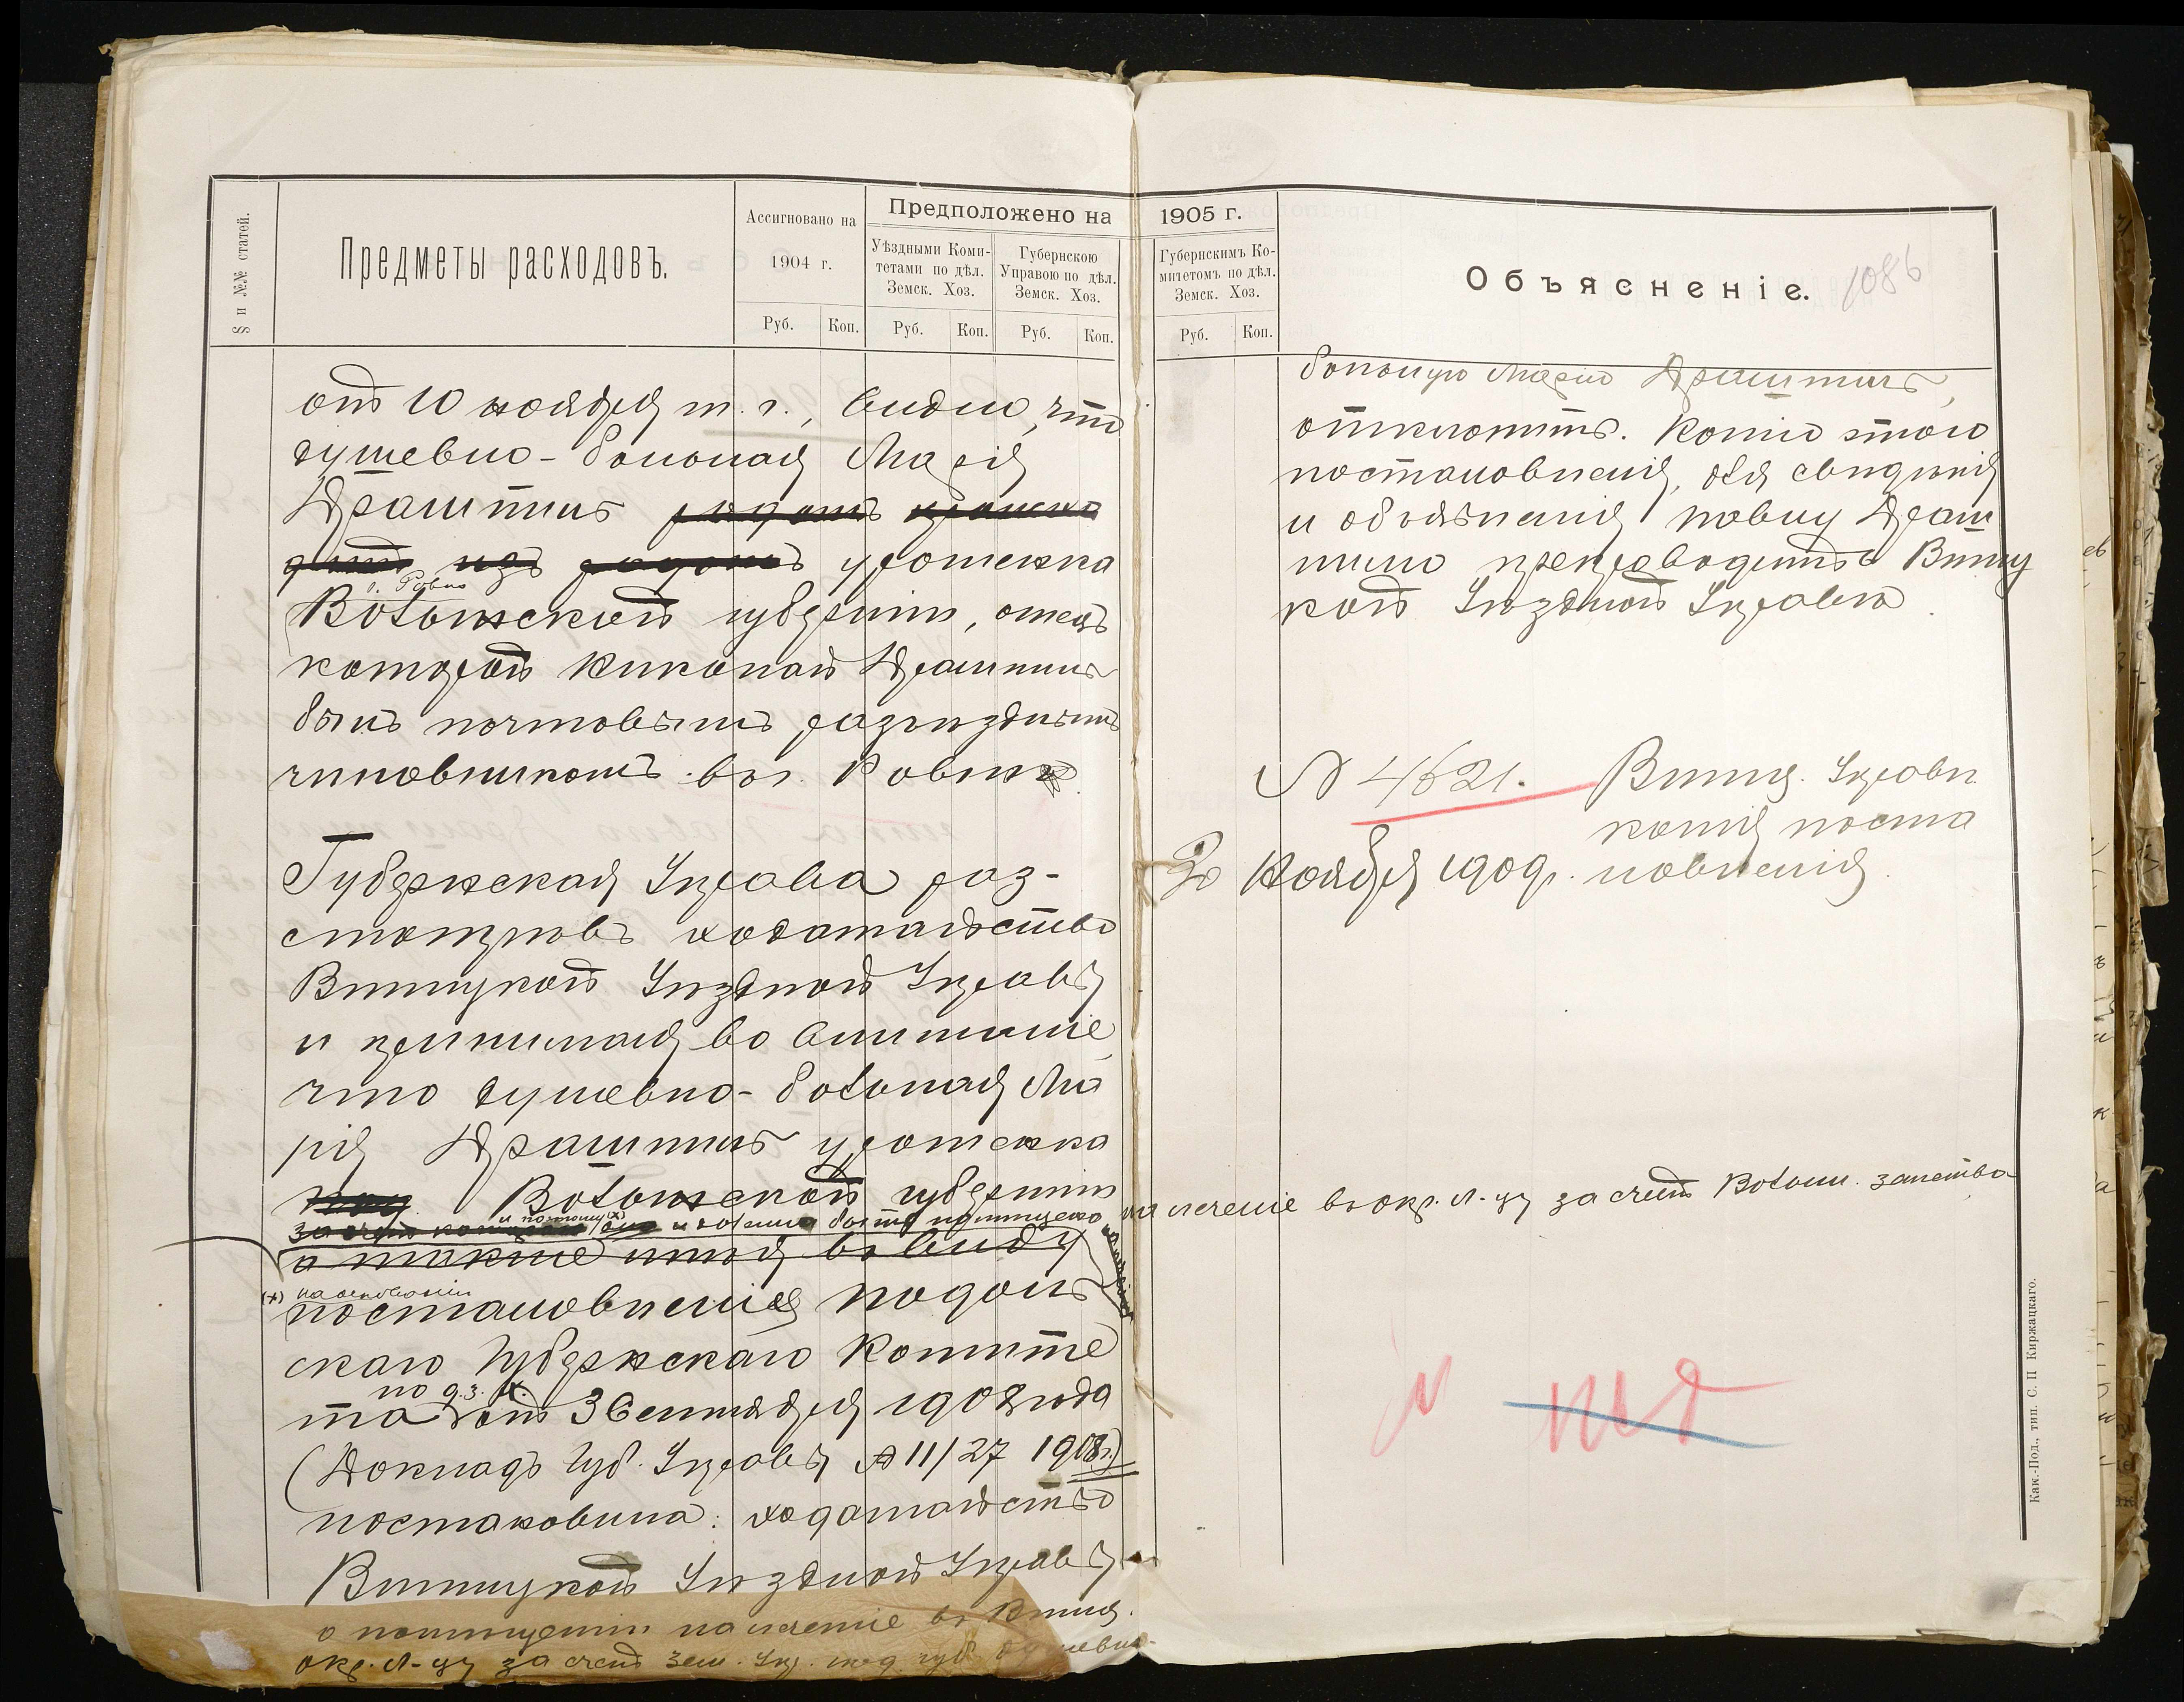 § и №№ статей.
Предметы расходовъ.
Ассигновано на
1904 г.
Руб. Коп.
Предположено на 1905 г.
Уѣздными Коми-
тетами по дѣл.
Земск. Хоз.
Руб. Коп.
Губернскою
Управою по дѣл.
Земск. Хоз.
Руб. Коп.
Губернскимъ Ко-
митетомъ по дѣл.
Земск. Хоз.
Руб. Коп.
Объясненіе.
1086
отъ 10 ноября т. г., видно, что
душевно-больная Марія
Драштикъ
уроженка
г. Ровно
Волынской губерніи, отецъ
которой Николай Драштикъ
былъ почтовымъ разъѣзднымъ
чиновникомъ въ г. Ровно
Губернская Управа раз-
смотрѣвъ ходатайство
Винницкой Уѣздной Управы
и принимая во вниманіе,
что душевно-больная Ма
рія Драштикъ уроженка
Волынской губерніи
и поэтому (х) и должна быть помѣщена на леченіе въ окр. л-цу за счетъ Волын. земства
а также имѣя въ виду
(х) на основаніи
постановленія Подоль
скаго Губернскаго Комите
по д. з. х.
та отъ 3 Сентября 1908 года
(Докладъ Губ. Управы № 11/27 1908 г.)
постановила: ходатайство
Винницкой Уѣздной Управы
о помѣщеніи на леченіе въ Винниц.
окр. л-цу за счетъ зем. губ. душевно-
больную Марію Драштикъ,
отклонить. Копію этого
постановленія, для свѣдѣнія
и объявленія Драш
тикъ препроводить Винниц
кой Уѣздной Управѣ.
№ 4621. Винниц. Управѣ
копія поста
30 Ноября 1909 г. новленія.
Кам.-Под., тип. С. П Киржацкаго.